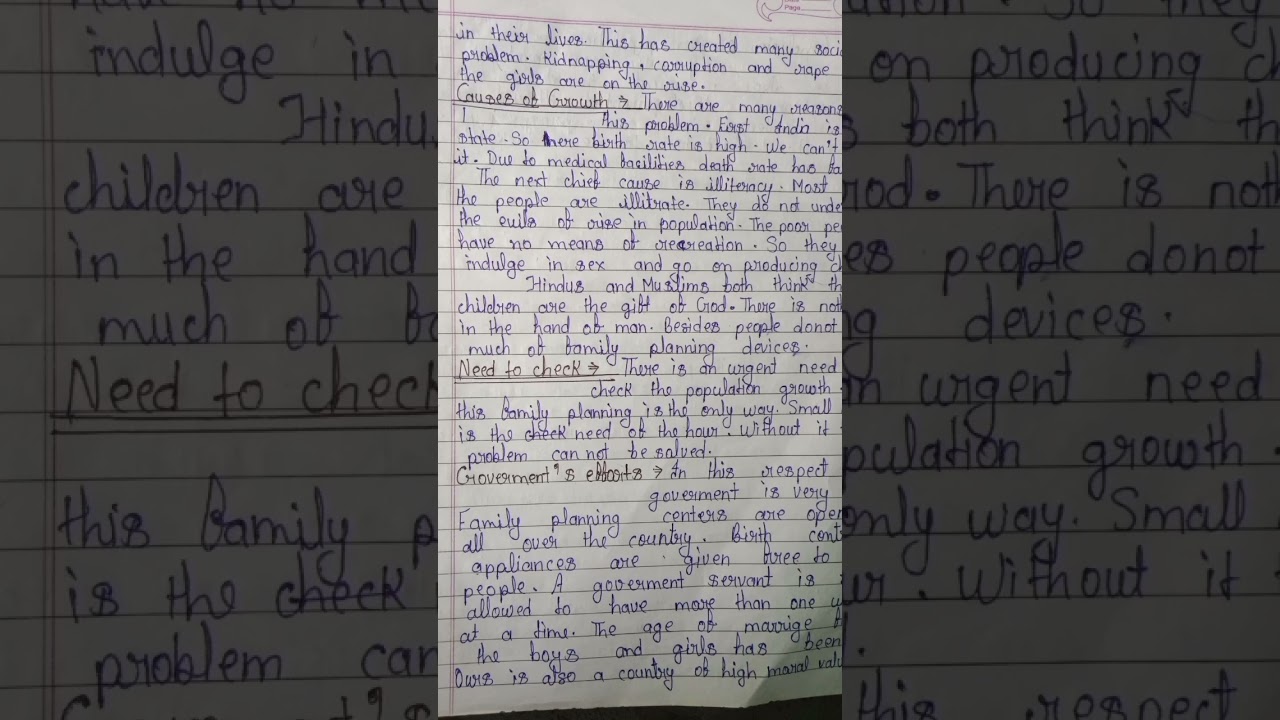 in their lives. This has created many soci
problem. Kidnapping, corruption and rape
the girls are on the rise.
Causes of Growth → There are many reasons
this problem. First India is
state. So there birth rate is high. We can't
it. Due to medical facilities death rate has fa
The next chief cause is illiteracy. Most
the people are illitrate. They do not unde
the evils of rise in population. The poor pe
have no means of recreation. So they
indulge in sex and go on producing c
Hindus and Muslims both think th
children are the gift of God. There is not
in the hand of man. Besides people donot
much of family planning devices.
Need to check → There is an urgent need
check the population growth
this family planning is the only way. Small
is the check need of the hour. Without it
problem can not be solved.
Goverment's efforts → In this respect
goverment is very
Family planning centers are open
all over the country. Birth cont
appliances are given free to
people. A goverment servant is
allowed to have more than one
at a time. The age of marrige
the boys and girls has been
Ours is also a country of high moral valu